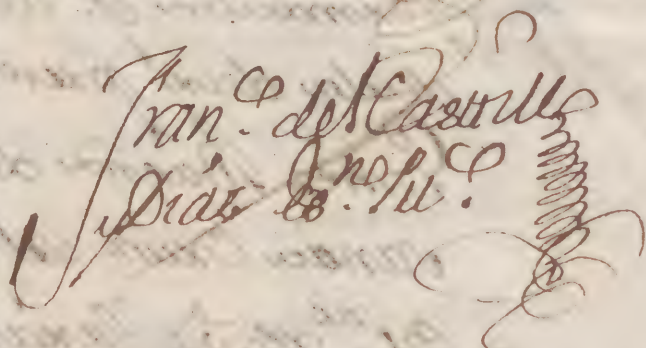 Fran.co del Castillo
y Díaz S.no pu.co